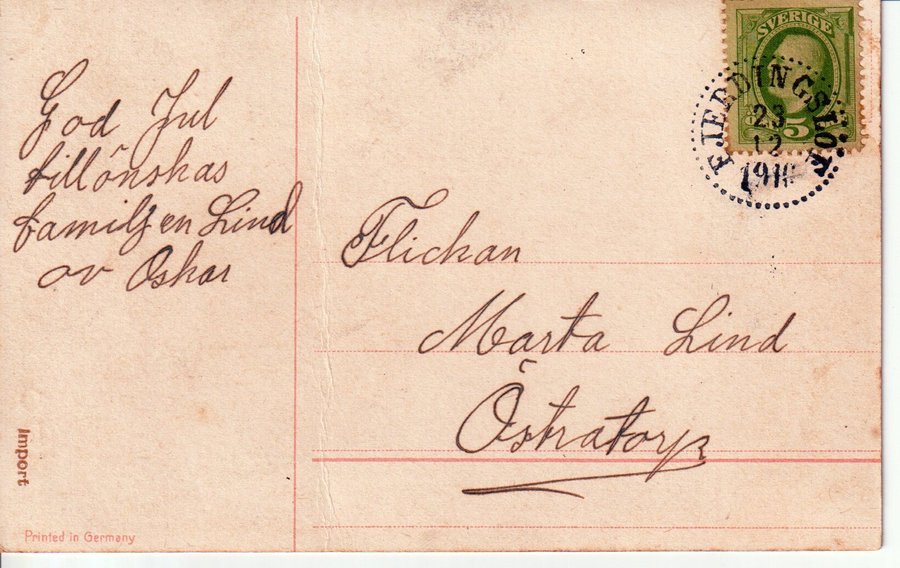 God Jul
tillönskas
familjen Lind
av Oskar
Flickan
Marta Lind
Östratorp
SVERIGE
5
FJERDINGSLÖF
23
12
1910
Import
Printed in Germany